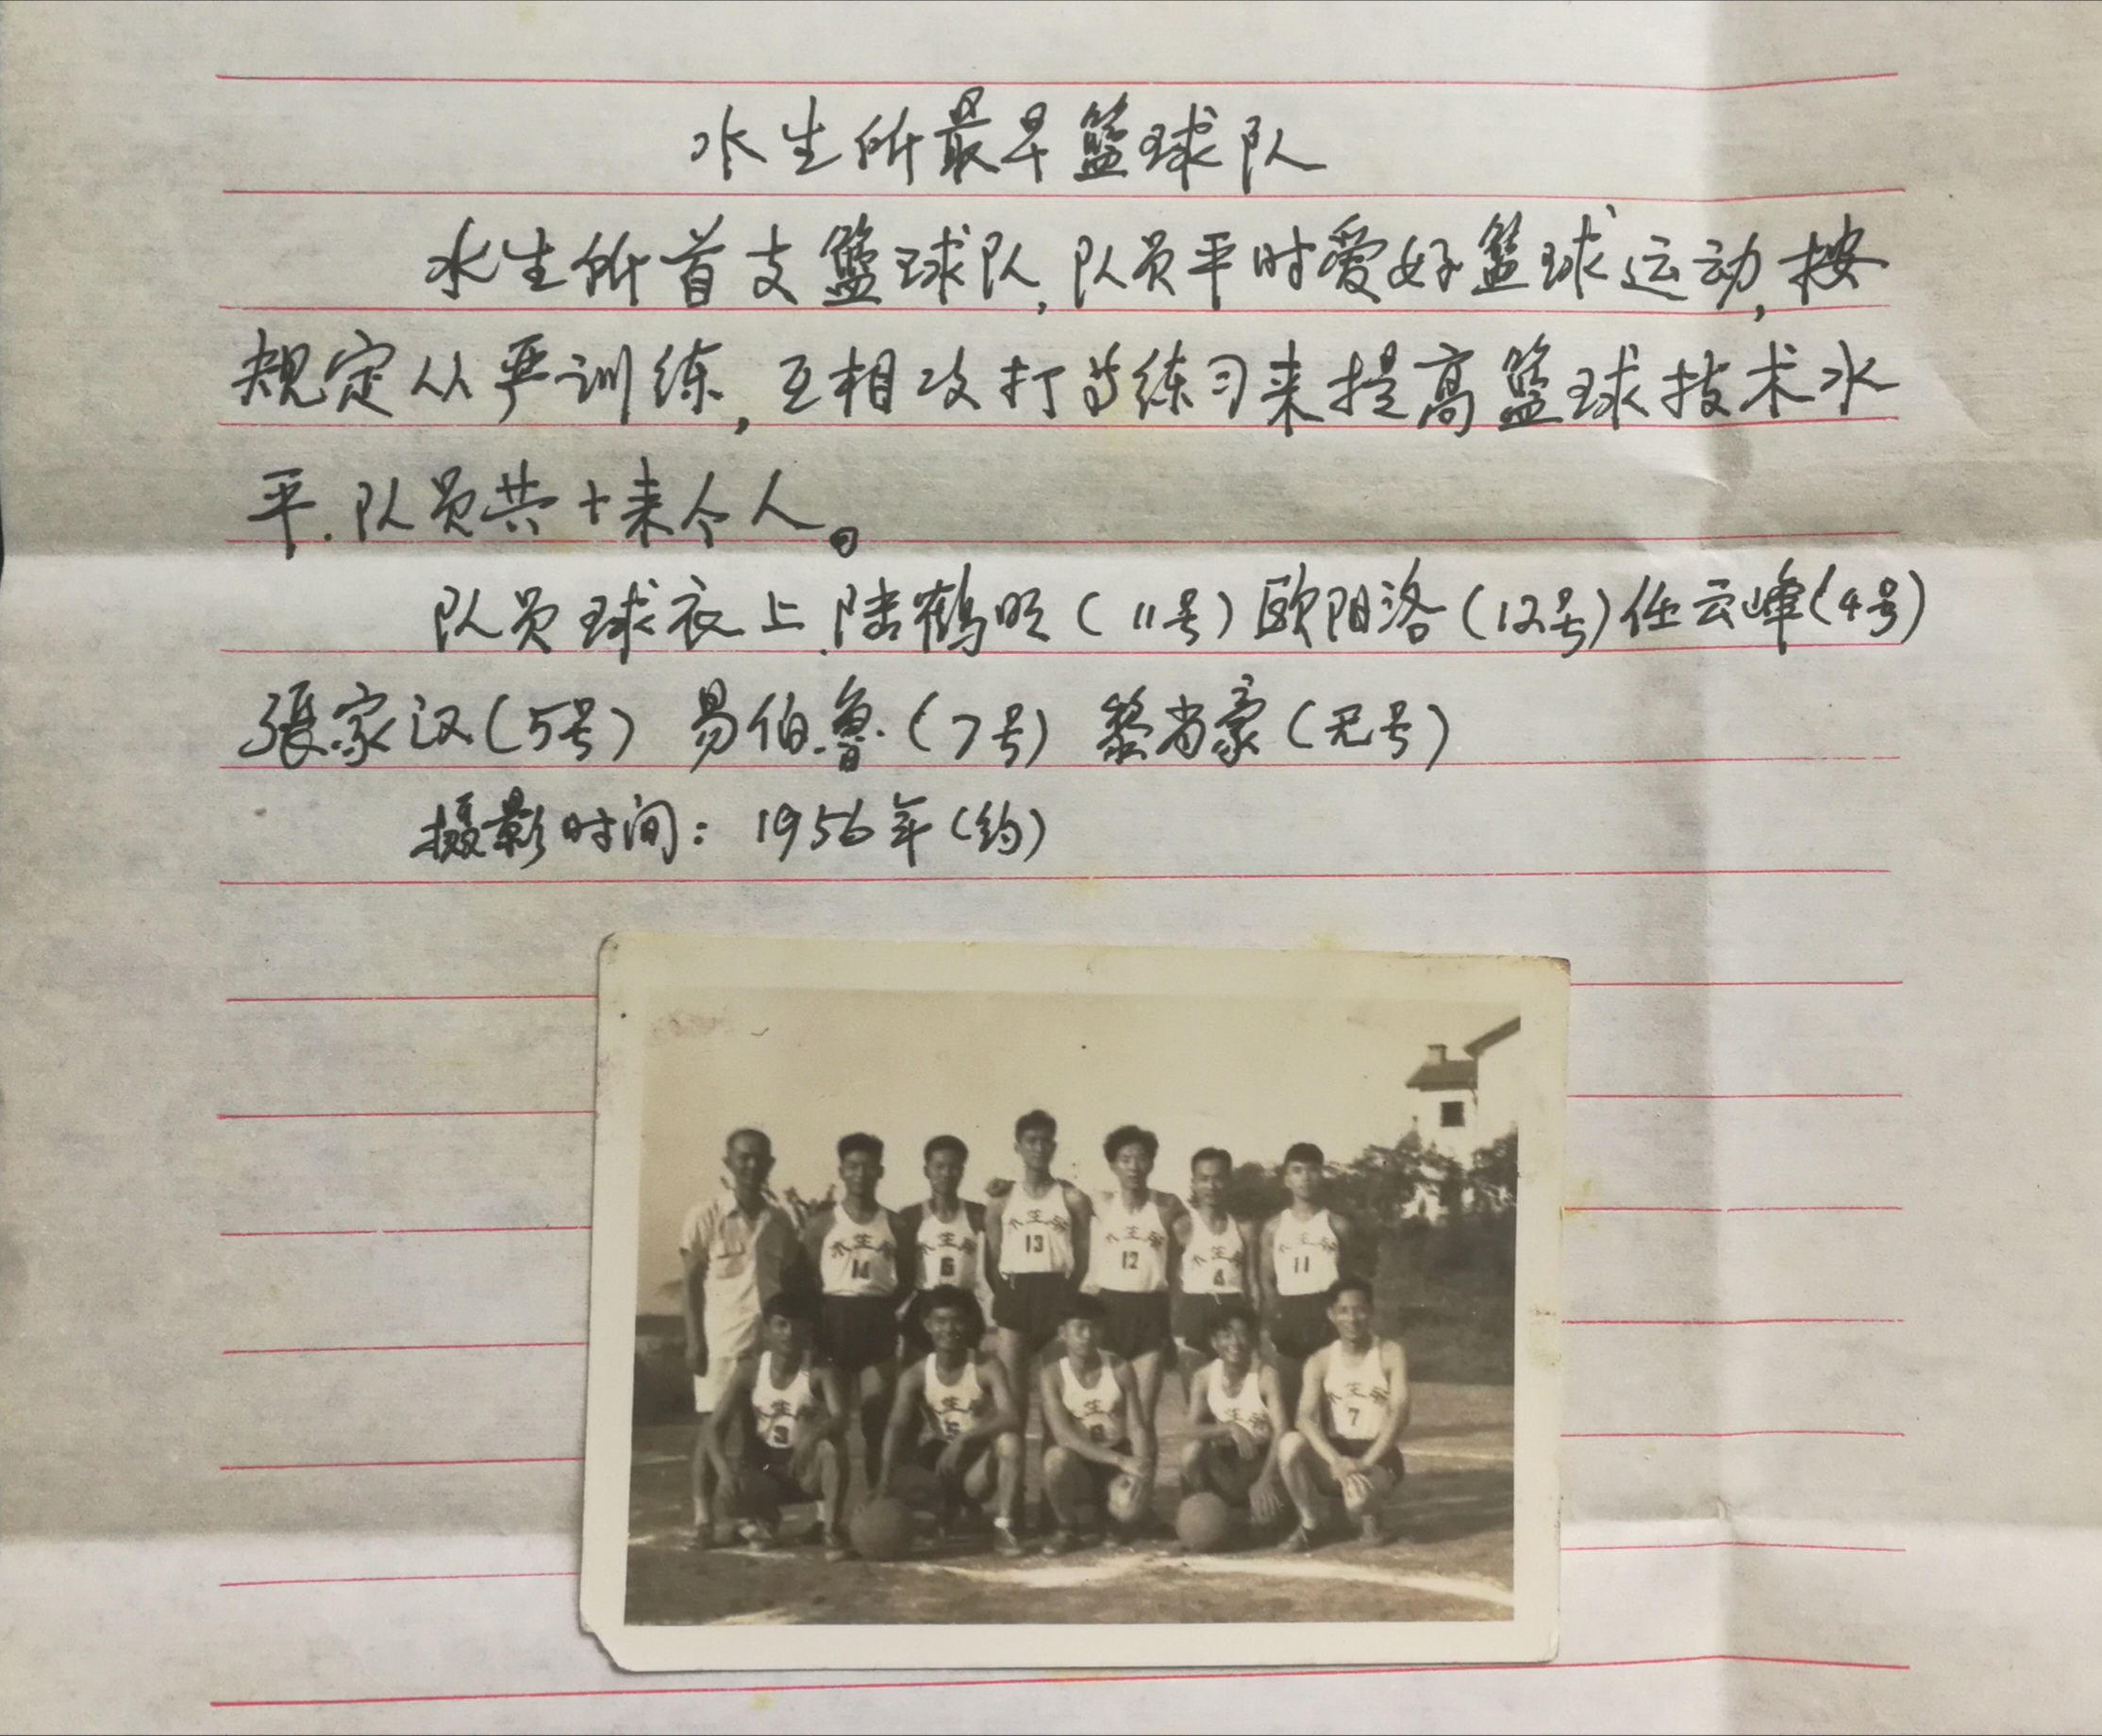 水生所最早篮球队
水生所首支篮球队,队员平时爱好篮球运动,按
规定从严训练,互相攻打当练习来提高篮球技术水
平.队员共十来个人。
队员球衣上.陆鹤明(11号)欧阳洛(12号)任云峰(4号)
張家汉(5号) 易伯鲁(7号) 黎尚豪(无号)
摄影时间: 1956年(约)
水生所 水生所 水生所 水生所 水生所 水生所
14 6 13 12 4 11
水生所 水生所 水生所 水生所 水生所
3 5 7